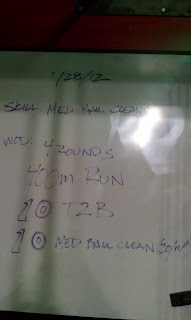 1/28/12
SKILL: MED BALL CLEAN
WOD: 4 ROUNDS
400M RUN
20 T2B
20 MED BALL CLEAN